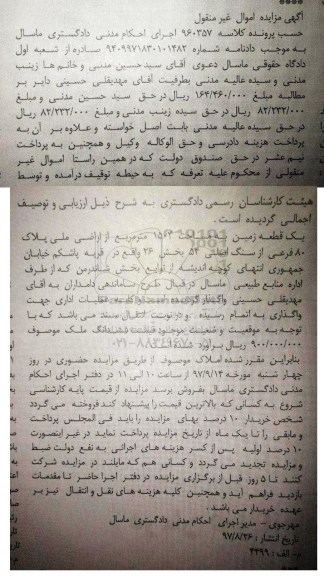 آگهی مزایده اموال غیر منقول
حسب پرونده کلاسه ۹۶۰۳۵۷ اجرای احکام مدنی دادگستری ماسال
به موجب دادنامه شماره ۹۴۰۹۹۷۱۸۳۰۱۰۱۴۸۲ صادره از شعبه اول
دادگاه حقوقی ماسال دعوی آقای سید حسین مدنی و خانم ها زینب
مدنی و سیده عالیه مدنی بطرفیت آقای مهدیقلی حسینی دایر بر
مطالبه مبلغ ۱۶۴/۴۶۰/۰۰۰ ریال در حق سید حسین مدنی و مبلغ
۸۲/۲۳۲/۰۰۰ ریال در حق سیده زینب مدنی و مبلغ ۸۲/۲۳۲/۰۰۰ ریال
در حق سیده عالیه مدنی بابت اصل خواسته و علاوه بر آن به
پرداخت هزینه دادرسی و حق الوکاله وکیل و همچنین به پرداخت
نیم عشر در حق صندوق دولت که در همین راستا اموال غیر
منقولی از محکوم علیه تعرفه که به حیطه توقیف درآمده و توسط
هیئت کارشناسان رسمی دادگستری به شرح ذیل ارزیابی و توصیف
اجمالی گردیده است.
یک قطعه زمین مترمربع از اراضی ملی پلاک
۸۰ فرعی از سنگ اصلی ۵۳ بخش ۲۶ واقع در قریه پاشکم خیابان
جمهوری انتهای کوچه اندیشه از توابع بخش شاندرمن که از طرف
اداره منابع طبیعی ماسال در قبال طرح ساماندهی دامداران به آقای
مهدیقلی حسینی واگذار گردیده عملیات اداری جهت
واگذاری به اتمام رسیده و در نوبت انتقال سند می باشد که با
توجه به موقعیت و وضعیت موجود قیمت ششدانگ ملک موصوف
۹۰۰/۰۰۰/۰۰۰ ریال برآورد
بنابراین مقرر شده املاک موصوف از طریق مزایده حضوری در روز
چهار شنبه مورخه ۹۷/۹/۱۴ از ساعت ۱۰ الی ۱۱ در دفتر اجرای احکام
مدنی دادگستری ماسال بفروش برسد مزایده از قیمت پایه کارشناسی
شروع به کسانی که بالاترین قیمت را پیشنهاد کند فروخته می گردد
شخص خریدار ۱۰ درصد بهای مزایده را باید فی المجلس پرداخت
و مابقی را تا یک ماه از تاریخ مزایده پرداخت نماید در غیر اینصورت
۱۰ درصد اولیه پس از کسر هزینه های اجرائی به نفع دولت ضبط
و مزایده تجدید می گردد و کسانی هم که مایلند در مزایده شرکت
کنند تا ۵ روز قبل از برگزاری مزایده در دفتر اجرا حاضر تا مقدمات
بازدید فراهم آید و همچنین کلیه هزینه های نقل و انتقال نیز بر
عهده خریدار می باشد.
مهرجوی - مدیر اجرای احکام مدنی دادگستری ماسال
تاریخ انتشار: ۹۷/۸/۲۶
م - الف: ۴۴۹۹